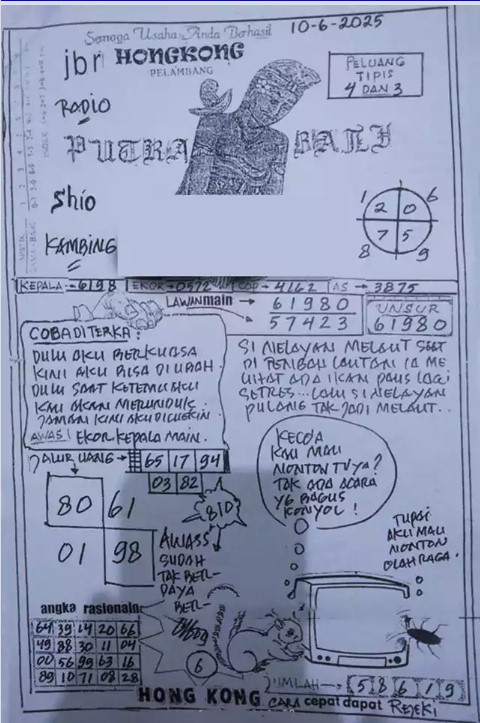 Semoga Usaha Anda Berhasil
10-6-2025
jbr HONGKONG
PELAMBANG
RADIO
PUTRA BALI
PELUANG
TIPIS
4 DAN 3
Shio
KAMBING
1 6
2 0
7 5
8 9
KEPALA → 6198 EKOR → 0572 COP → 4162 AS → 3875
LAWAN main → 61980
57423
UNSUR
61980
COBA DITERKA:
DULU AKU BERKUASA
KINI AKU BISA DIUBAH.
DULU SAAT KETEMU AKU
KAU AKAN MERUNDUK.
ZAMAN KINI AKU DICUEKIN
AWAS! EKOR KEPALA MAIN.
SI NELAYAN MELAUT SAAT
DI TENGAH LAUTAN IA ME
LIHAT ADA IKAN PAUS LAGI
SETRES... LALU SI NELAYAN
PULANG TAK JADI MELAUT..
JALUR UANG → 65 17 94
03 82
80 61
01 98
BID
AWASS
SUDAH
TAK BER-
DAYA
BER-
KECOA
KAU MAU
NONTON TV YA?
TAK ADA ACARA
YG BAGUS
KONYOL!
TUPAI
AKU MAU
NONTON
OLAHRAGA.
angka rasional
64 39 14 20 66
49 88 30 11 04
00 56 99 63 16
89 10 71 08 28
6
JUMLAH → 5 8 6 1 9
HONG KONG CARA cepat dapat REJEKI